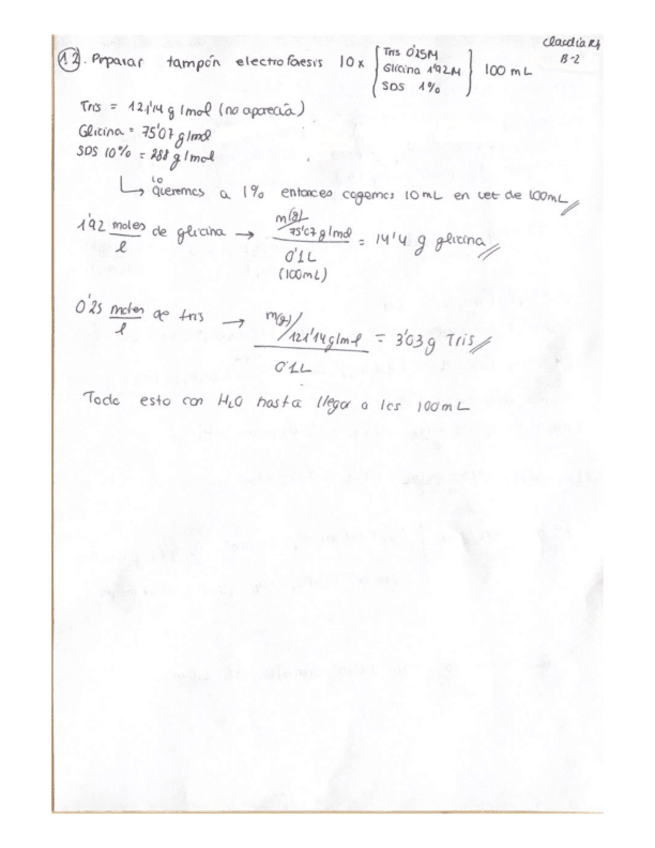 Claudia Rf
B-2
12. Prparar tampón electroforesis 10x { Tris 0'25M
Glicina 1'92M
SDS 1% } 100 mL
Tris = 121'14 g/mol (no aparecía)
Glicina = 75'07 g/mol
SDS 10% = 288 g/mol
↳ lo queremos a 1% entonces cogemos 10mL en vet de 100mL
1'92 moles/l de glicina → m(g)/75'07 g/mol / 0'1L (100mL) = 14'4 g glicina
0'25 moles/l de tris → m(g)/121'14 g/mol / 0'1L = 3'03 g Tris
Todo esto con H2O hasta llegar a los 100mL